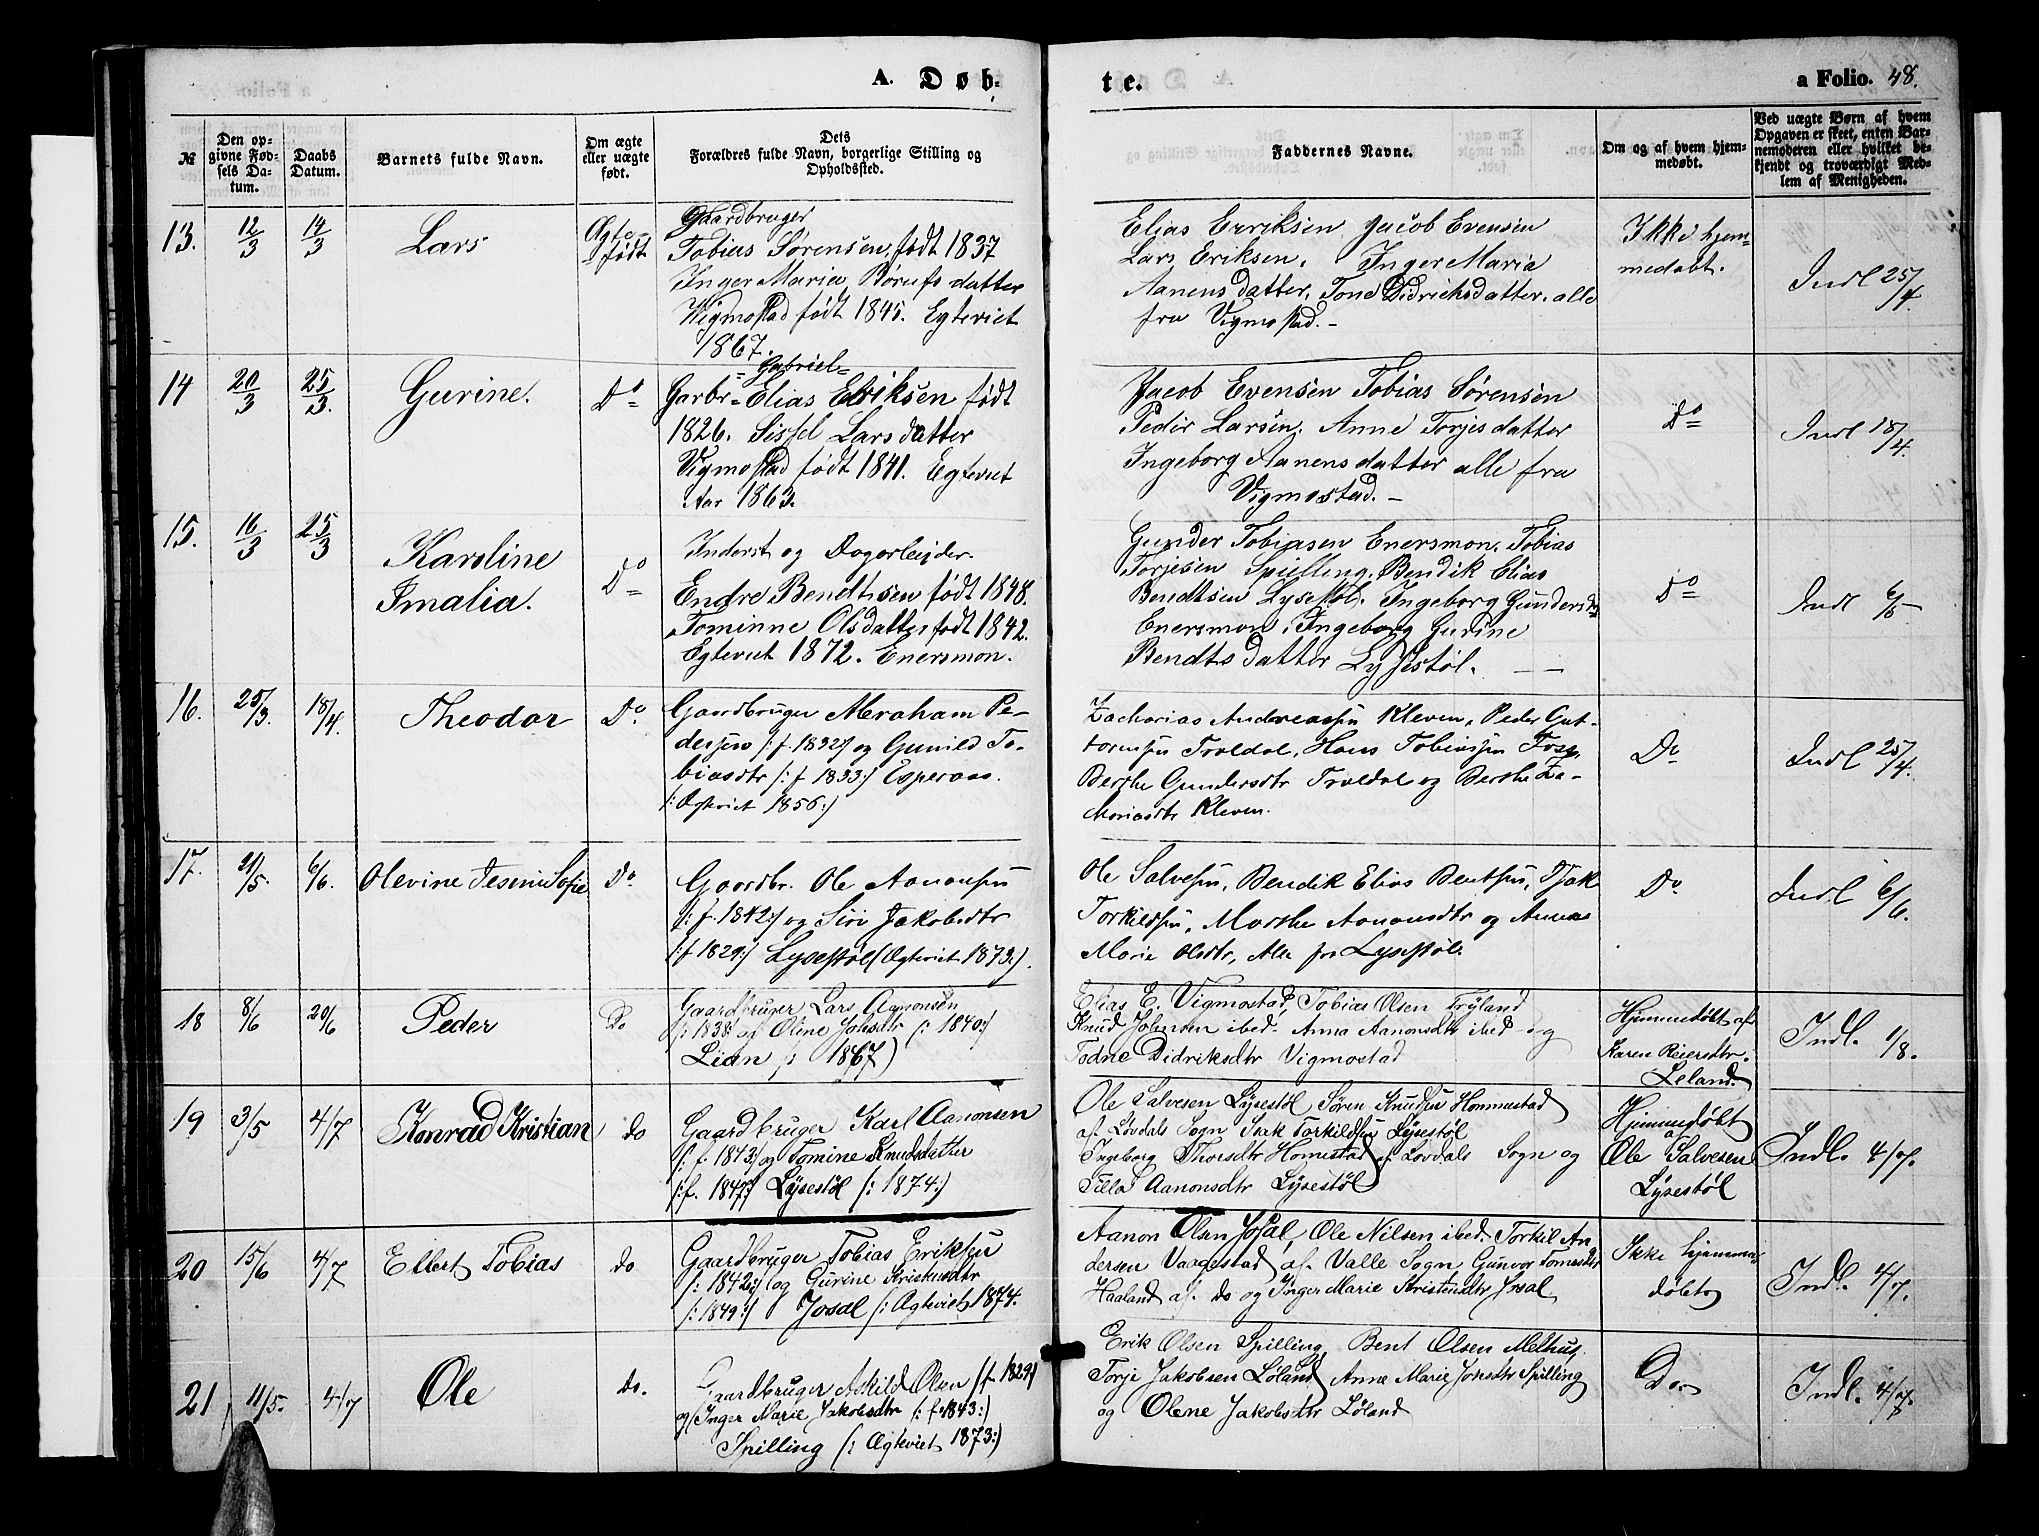 A. Døb-
te.
a Folio. 48.
№
Den op-
givne Fød-
sels Da-
tum.
Daabs
Datum.
Barnets fulde Navn.
Om ægte
eller uægte
født.
Dets
Forældres fulde Navn, borgerlige Stilling og
Opholdssted.
Faddernes Navne.
Om og af hvem hjem-
medøbt.
Ved uægte Børn af hvem
Opgaven er skeet, enten Bar-
nemoderen eller hvilket be-
kjendt og troværdigt Med-
lem af Menigheden.
13. 12/3 14/3 Lars Ægte-
født
Gaardbruger
Tobias Sørensen, født 1837
Inger Maria datter
Wigmostad født 1845. Egteviet
1867.
Elias Eeriksen Jacob Evensen
Lars Eriksen. Inger Maria
Aanensdatter, Tone Didrichsdatter. alle
fra Vigmostad.-
Ikke hjem-
medøbt.
Indl 25/4
14 20/3 25/3. Gurine. Do
=Gabriel=
Garbr=Elias Eeriksen født
1826. Sissel Larsdatter
Vigmostad født 1841. Egteviet
Aar 1863.
Jacob Evensen Tobias Sørensen
Peder Larsen. Anne Torjesdatter
Ingeborg Aanensdatter alle fra
Vigmostad.-
Do
Indl 18/4.
15. 16/3 25/3 Karoline
Imalia. Do
Inderst og Dagarbejder.
Endre Bendtsen født 1848.
Tominne Olsdatter født 1842.
Egteviet 1872. Enersmon.
Gunder Tobiasen Enersmon. Tobias
Torjesen Spilling. Bendik Elias
Bendtsen Lysestøl. Ingeborg Gundersdr
Enersmon. Ingeborg Gurine
Bendtsdatter Lysestøl. —
Do
Indl 6/5
16. 25/3. 18/4. Theodor Do.
Gaardbruger Abraham Pe-
dersen /: f. 1832 :/ og Gunild To-
biasdtr /: f 1833 :/ Esperaas.
/: Ægteviet 1856 :/
Zacharias Andreassen Kleven, Peder Gut-
tormsen Troldal, Hans Tobiassen
Berthe Gundersdtr Troldal og Berthe Za-
chariasdtr Kleven.
Do
Indl 25/4.
17. 21/5. 6/6. Olevine Jesine Sofie Do.
Gaardbr. Ole Aanonsen
/: f. 1842 :/ og Siri Jakobsdtr
/: f 1829 :/ Lysestøl (Ægteviet 1873:).
Ole Salvesen, Bendik Elias Bentsen, Isak
Torkildsen, Marthe Aanonsdtr og Anne
Marie Olsdtr, Alle fra Lysestøl.
Do.
Indl 6/6.
18 8/6 20/6 Peder Do
Gaardbruger Lars Aanonsen
/: 1838 af Oline Johsdtr /: 1840 :/
Lian /: 1867)
Elias E. Vigmostad, Tobias Olsen Fryland
Knud Johnsen ibed. Anna Aanonsdtr ibed og
Todne Didriksdtr Vigmostad
Hjemmedøbt af
Karen Reiersdtr.
Leland.
Indl. 1/8.
19 3/5 4/7 Konrad Kristian do
Gaardbruger Karl Aanonsen
/: f. 1843 :/ og Tomine Knudsdatter
/: f. 1847 :/ Lÿsestøl /: 1874 :/
Ole Salvesen Lÿsestøl Søren Knudsen Hommestad
af Løvdals Sogn Isak Torkildsen Lÿsestøl
Ingeborg Thorsdtr Homestad af Løvdals Sogn og
Tilla Aanonsdtr Lÿsestøl
Hjemmedøbt
af
Ole Salvesen
Lÿsestøl
Indl. 4/7.
20 15/6 4/7 Elbert Tobias do
Gaardbruger Tobias Eriksen
/: 1842 :/ og Gurine Kristensdtr
/: 1849 :/ Josdal /: Ægteviet 1874.
Aanon Olsen Josdal, Ole Nilsen ibed Torkil An-
dersen Vaagestad af Valle Sogn Gunvor Tomesdtr
Haaland af do og Inger Marie Kristensdtr Josdal
Ikke hjemme-
døbt
Indl. 4/7.
21 11/5. 4/7 Ole do.
Gaardbruger Askild Olsen /: f 1829 :/
og Inger Marie Jakobsdtr /: f. 1843 :/
Spilling /: Ægteviet 1873 :/
Erik Olsen Spilling, Bent Olsen Melhus
Torje Jakobsen Løland, Anne Marie Jonsdtr Spilling
og Olene Jakobsdtr Løland
Do
Indl. 4/7.